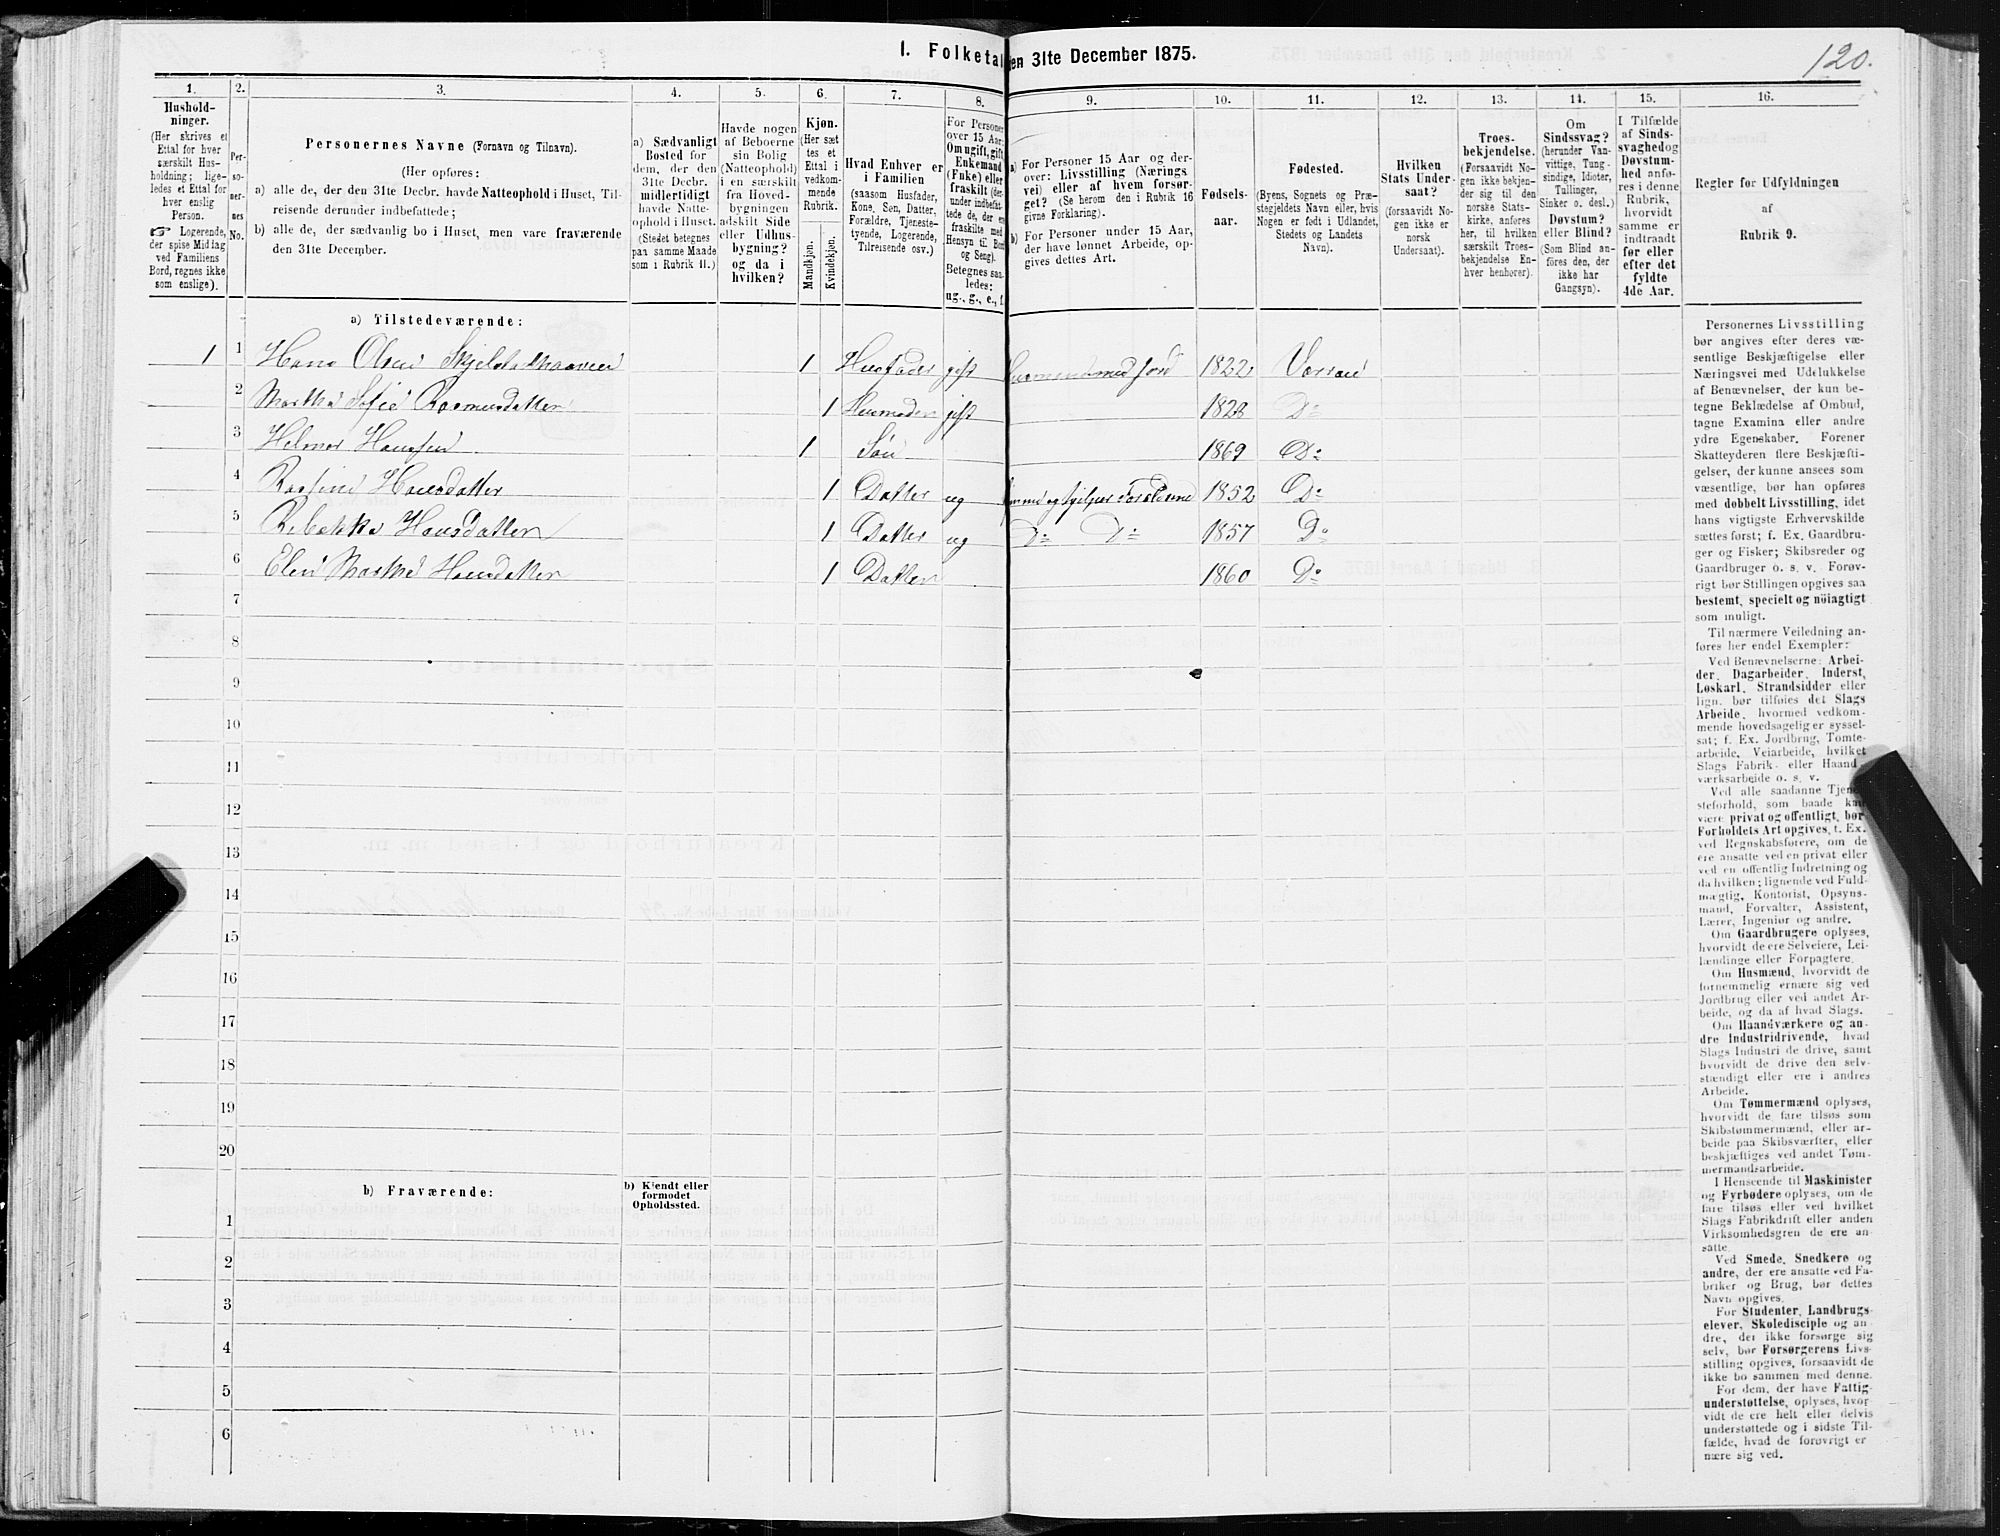 120.
I. Folketal den 31te December 1875.
1. 2. 3. 4. 5. 6. 7. 8. 9. 10. 11. 12. 13. 14. 15. 16.
Hushold-
ninger.
(Her skrives et
Ettal for hver
særskilt Hus-
holdning; lige-
ledes et Ettal for
hver enslig
Person.
☞ Logerende,
der spise Middag
ved Familiens
Bord, regnes ikke
som enslige).
Per-
so-
ner-
nes
No.
Personernes Navne (Fornavn og Tilnavn).
(Her opføres:
a) alle de, der den 31te Decbr. havde Natteophold i Huset, Til-
reisende derunder indbefattede;
b) alle de, der sædvanlig bo i Huset, men vare fraværende
den 31te December.
a) Sædvanligt
Bosted for
dem, der den
31te Decbr.
midlertidigt
havde Natte-
ophold i Huset.
(Stedet betegnes
paa samme Maade
som i Rubrik 11.)
Havde nogen
af Beboerne
sin Bolig
(Natteophold)
i en særskilt
fra Hoved-
bygningen
adskilt Side
eller Udhus-
bygning?
og da i
hvilken?
Kjøn.
(Her sæt
tes et
Ettal i
vedkom-
mende
Rubrik.
Mandkjøn.
Kvindekjøn.
Hvad Enhver er
i Familien
(saasom Husfader,
Kone, Søn, Datter,
Forældre, Tjeneste-
tyende, Logerende,
Tilreisende osv.)
For Personer
over 15 Aar:
Om ugift, gift,
Enkemand
(Enke) eller
fraskilt (der-
under indbefat-
tede de, der er
fraskilte med
Hensyn til Bord
og Seng).
Betegnes saa-
ledes:
ug., g., e., f.
a) For Personer 15 Aar og der-
over: Livsstilling (Nærings
vei) eller af hvem forsør-
get? (Se herom den i Rubrik 16
givne Forklaring).
b) For Personer under 15 Aar,
der have lønnet Arbeide, op-
gives dettes Art.
Fødsels-
aar.
Fødested.
(Byens, Sognets og Præ-
stegjeldets Navn eller, hvis
Nogen er født i Udlandet,
Stedets og Landets
Navn).
Hvilken
Stats Under-
saat?
(forsaavidt No-
gen ikke er
norsk
Undersaat).
Troes-
bekjendelse.
(Forsaavidt No-
gen ikke bekjen-
der sig til den
norske Stats-
kirke, anføres
her, til hvilken
særskilt Troes-
bekjendelse En-
hver henhører).
Om
Sindssvag?
(herunder Van-
vittige, Tung-
sindige, Idioter,
Tullinger,
Sinker o. desl.)
Døvstum?
eller Blind?
(Som Blind an-
føres den, der
ikke har
Gangsyn).
I Tilfælde
af Sinds-
svaghed og
Døvstum-
hed anfø-
res i denne
Rubrik,
hvorvidt
samme er
indtraadt
før eller
efter det
fyldte
4de Aar.
Regler for Udfyldningen
af
Rubrik 9.
a) Tilstedeværende:
1 1 Hans Olsen Skjelstadhaaven 1 Husfader gift Husmand med Jord 1822 Værran
2 Martha Sofie Rasmusdatter 1 Husmoder gift 1828 Do
3 Helmer Hansen 1 Søn 1869 Do
4 Rasine Hansdatter 1 Datter ug hjemme og hjelper Forældrene 1852 Do
5 Rebekka Hansdatter 1 Datter ug Do Do 1857 Do
6 Elen Marthe Hansdatter 1 Datter 1860 Do
7
8
9
10
11
12
13
14
15
16
17
18
19
20
b) Fraværende:
b) Kjendt eller
formodet
Opholdssted.
1
2
3
4
5
6
Personernes Livsstilling
bør angives efter deres væ-
sentlige Beskjæftigelse eller
Næringsvei med Udelukkelse
af Benævnelser, der kun be-
tegne Beklædelse af Ombud,
tagne Examina eller andre
ydre Egenskaber. Forener
Skatteyderen flere Beskjæfti-
gelser, der kunne ansees som
væsentlige, bør han opføres
med dobbelt Livsstilling, idet
hans vigtigste Erhvervskilde
sættes først; f. Ex. Gaardbru-
ger og Fisker; Skibsreder og
Gaardbruger o. s. v. Forøv-
rigt bør Stillingen opgives saa
bestemt, specielt og nöiagtigt
som muligt.
Til nærmere Veiledning an-
føres her endel Exempler:
Ved Benævnelserne: Arbei-
der, Dagarbeider, Inderst,
Løskarl, Strandsidder eller
lign. bør tilføies det Slags
Arbeide, hvormed vedkom-
mende hovedsagelig er syssel-
sat; f. Ex. Jordbrug, Tomte-
arbeide, Veiarbeide, hvilket
Slags Fabrik- eller Haand-
værksarbeide o. s. v.
Ved alle saadanne Tjene-
steforhold, som baade kan
være privat og offentligt, bør
Forholdets Art opgives, t. Ex.
ved Regnskabsførere, om de
ere ansatte ved en privat eller
ved en offentlig Indretning og
da hvilken; lignende ved Fuld-
mægtig, Kontorist, Opsyns-
mand, Forvalter, Assistent,
Lærer, Ingeniør og andre.
Om Gaardbrugere oplyses,
hvorvidt de ere Selveiere, Lei-
lændinge eller Forpagtere.
Om Husmænd, hvorvidt de
fornemmelig ernære sig ved
Jordbrug eller ved andet Ar-
beide, og da af hvad Slags.
Om Haandværkere og an-
dre Industridrivende, hvad
Slags Industri de drive, samt
hvorvidt de drive den selv-
stændigt eller ere i andres
Arbeide.
Om Tømmermænd oplyses,
hvorvidt de fare tilsøs som
Skibstømmermænd, eller ar-
beide paa Skibsværfter, eller
beskjæftiges ved andet Tøm-
mermandsarbeide.
I Henseende til Maskinister
og Fyrbødere oplyses, om de
fare tilsøs eller ved hvilket
Slags Fabrikdrift eller anden
Virksomhedsgren de ere an-
satte.
Ved Smede, Snedkere og
andre, der ere ansatte ved Fa-
briker og Brug, bør dettes
Navn opgives.
For Studenter, Landbrugs-
elever, Skoledisciple og an-
dre, der ikke forsørge sig
selv, bør Forsørgerens Livs-
stilling opgives, forsaavidt de
ikke bo sammen med denne.
For dem, der have Fattig-
understøttelse, oplyses, hvor-
vidt de ere helt eller delvis
understøttede og i sidste Til-
fælde, hvad de forøvrigt er
nære sig ved.